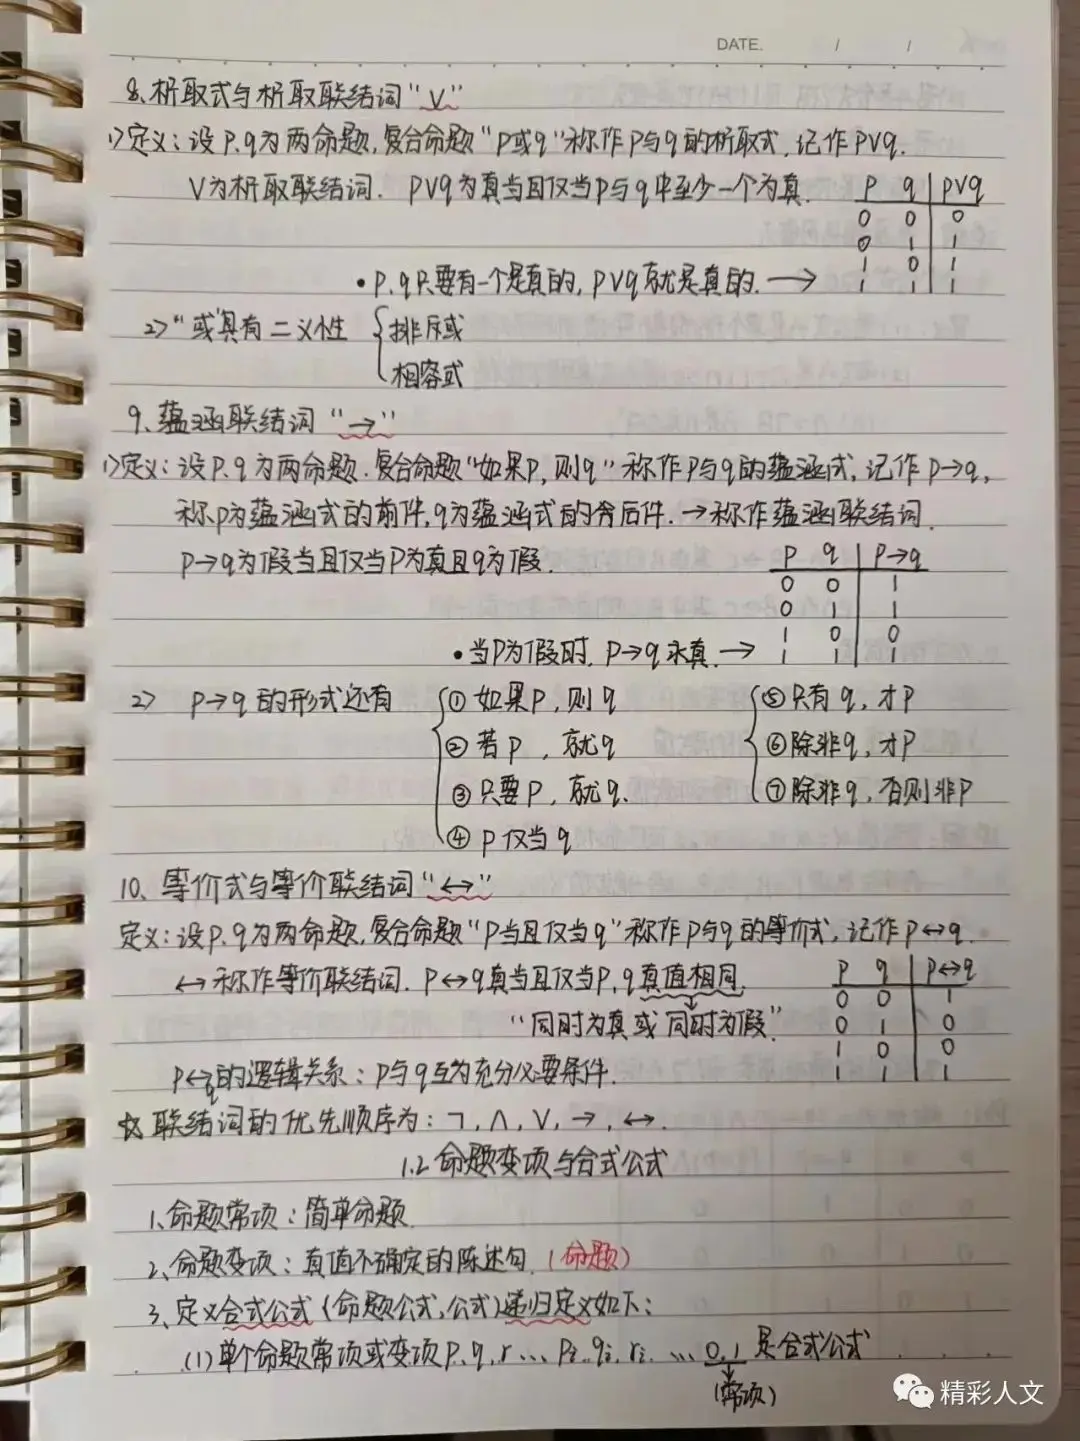 DATE. / /
8、析取式与析取联结词“∨”
1>定义：设P、q为两命题，复合命题“P或q”称作P与q的析取式，记作P∨q.
∨为析取联结词. P∨q为真当且仅当P与q中至少一个为真.
P q P∨q
0 0 0
0 1 1
1 0 1
1 1 1
•P、q只要有一个是真的，P∨q就是真的. →
2>“或”具有二义性 { 排斥或
相容或
9、蕴涵联结词“→”
1>定义：设P、q为两命题. 复合命题“如果P，则q”称作P与q的蕴涵式，记作P→q，
称P为蕴涵式的前件，q为蕴涵式的后件. →称作蕴涵联结词.
P→q为假当且仅当P为真且q为假.
P q P→q
0 0 1
0 1 1
1 0 0
1 1 1
•当P为假时，P→q永真. →
2> P→q的形式还有
① 如果P，则q
② 若P，就q
③ 只要P，就q.
④ P仅当q
⑤ 只有q，才P
⑥ 除非q，才P
⑦ 除非q，否则非P
10、等价式与等价联结词“↔”
定义：设P、q为两命题，复合命题“P当且仅当q”称作P与q的等价式，记作P↔q.
↔称作等价联结词. P↔q真当且仅当P、q真值相同.
“同时为真或同时为假”
P q P↔q
0 0 1
0 1 0
1 0 0
1 1 1
P↔q的逻辑关系：P与q互为充分必要条件.
☆联结词的优先顺序为：¬，∧，∨，→，↔.
1.2 命题变项与合式公式
1、命题常项：简单命题.
2、命题变项：真值不确定的陈述句.（命题）
3、定义合式公式（命题公式，公式）递归定义如下：
(1)单个命题常项或变项P、q、r…、Pi、qi、ri、…、0、1是合式公式
(常项)
精彩人文